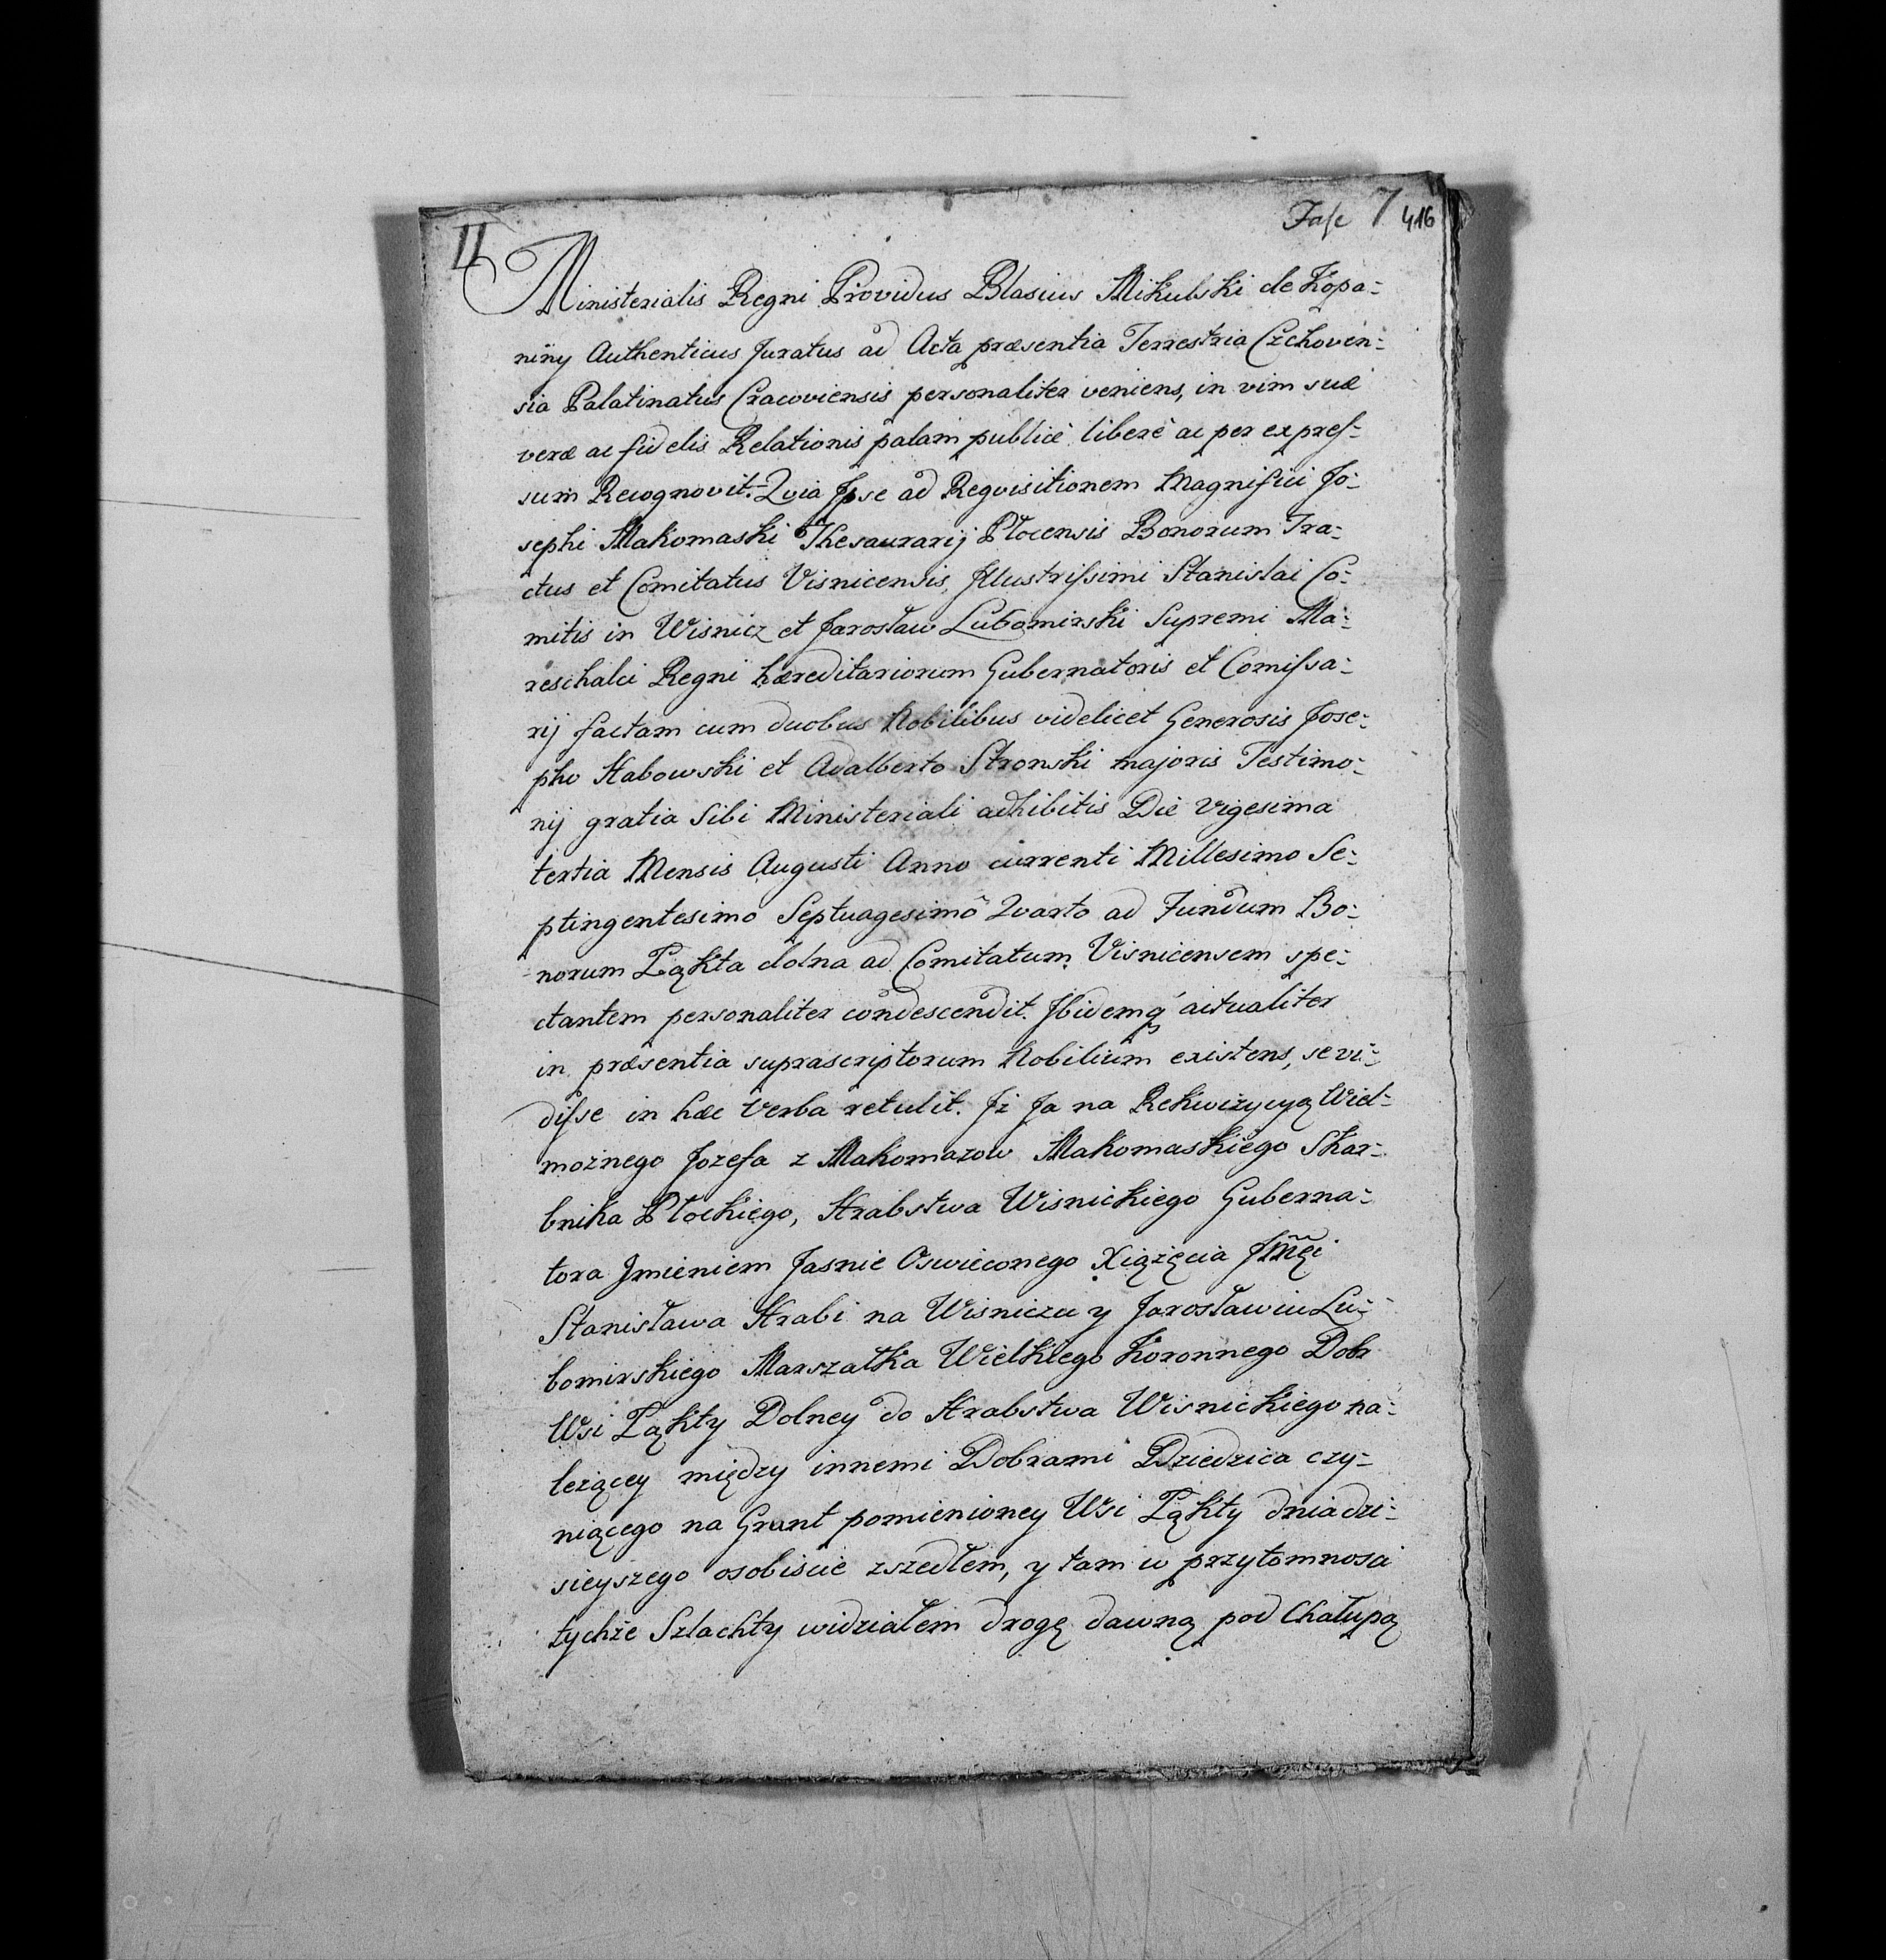 11
Fasc 7 416
Ministerialis Regni Providus Blasius Mikulski de Kopa=
niny Authenticus Juratus ad Acta præsentia Terrestria Czchovien=
sia Palatinatus Cracoviensis personaliter veniens, in vim suæ
veræ ac fidelis Relationis palam publicè liberè ac per expres=
sum Recognovit. Quia Ipse ad Requisitionem Magnifici Jo=
sephi Makomaski Thesaurarij Płocensis Bonorum Tra=
ctus et Comitatus Visnicensis, Illustrissimi Stanislai Co=
mitis in Wisnicz et Jarosław Lubomirski Supremi Ma=
reschalci Regni hæreditariorum Gubernatoris et Comissa=
rij factam cum duobus Nobilibus videlicet Generosis Jose=
pho Habowski et Adalberto Stronski majoris Testimo=
nij gratia Sibi Ministeriali adhibitis Die vigesima
tertia Mensis Augusti Anno currenti Millesimo Se=
ptingentesimo Septuagesimô Qvarto ad Fundum Bo=
norum Łąkta dolna ad Comitatum Visnicensem spe=
ctantem personaliter condescendit. Ibidemq actualiter
in præsentia suprascriptorum Nobilium existens, se vi=
disse in hæc verba retulit. Iż Ja na Rekwizycyą Wiel=
możnego Jozefa z Makomazow Makomaskiego Skar=
bnika Płockiego, Hrabstwa Wisnickiego Guberna=
tora Imieniem Jasnie Oswieconego Xiążęcia Jmci
Stanisława Hrabi na Wisniczu y Jarosławiu Lu=
bomirskiego Marszałka Wielkiego Koronnego Dobr
Wsi Łąkty Dolney do Hrabstwa Wisnickiego na=
leżącey między innemi Dobrami Dziedzica czy=
niącego na Grunt pomienioney Wsi Łąkty dnia dzi=
sieyszego osobiscie zszedłem, y tam w przytomnosci
tychże Szlachty widziałem drogę dawną pod Chałupą